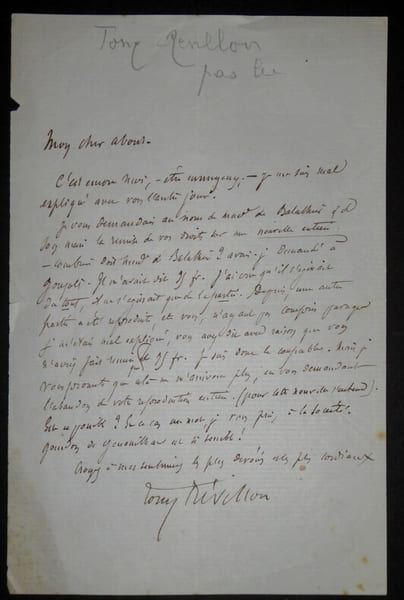 Tony Revillon
pas lu
Mon cher abonné.
C'est encore moi, - être ennuyeux, - je me suis mal
expliqué avec vous l'autre jour.
Je vous demandais au nom de mad. de
la remise de vos droits sur une nouvelle entière.
- Combien doit mad. de ? avais-je demandé à
. Il m'avait dit 25 fr. J'ai cru qu'il s'agissait
du tout, il ne s'agissait que de la partie. Depuis, une autre
partie a été reproduite et vous, n'ayant pas compris parce que
je m'étais mal expliqué, vous avez dit avec raison que vous
n'aviez fait remise que de 25 fr. Je suis donc le coupable. Mais je
vous que cela ne m'arrivera plus, en vous demandant
l'abandon de votre reproduction entière. (pour cette nouvelle seulement).
Est-ce possible ? En ce cas un mot je vous prie, à la société.
de est si terrible !
Croyez à mes sentiments les plus dévoués et les plus cordiaux
Tony Révillon